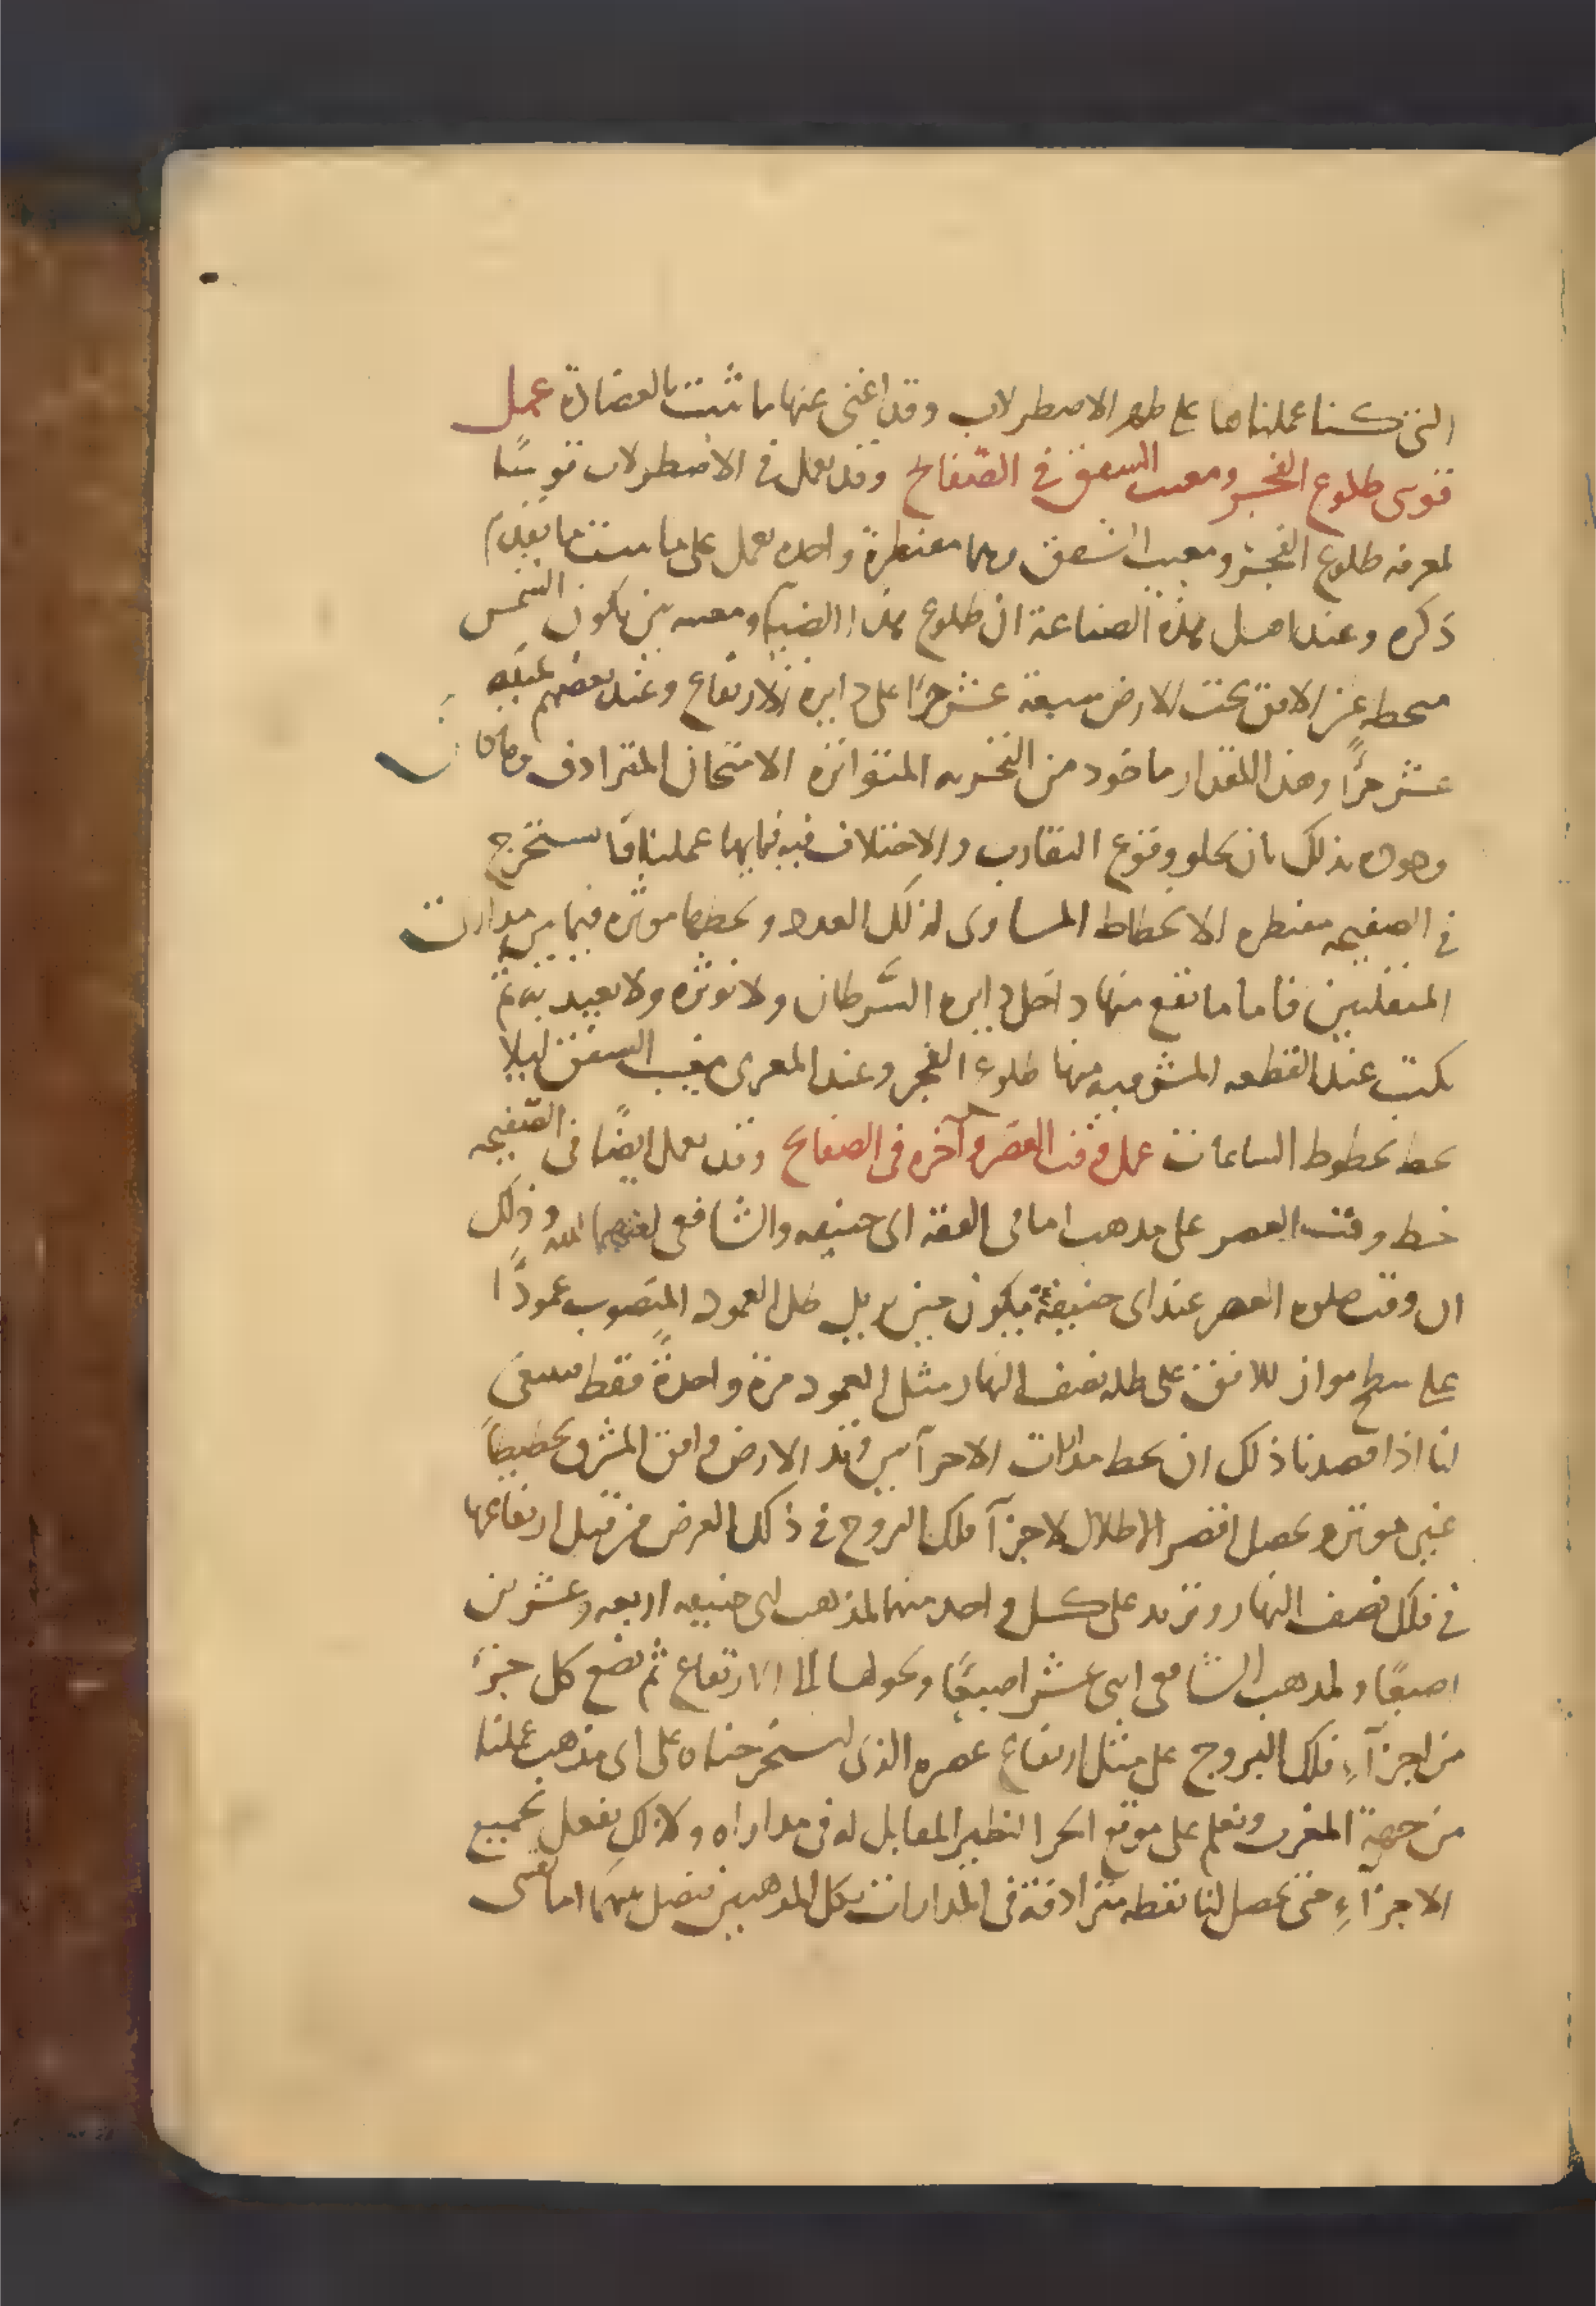 التى كنا عملناها على ظهر الاصطرلاب وقد اغنى عنها ما ثبت بالعضادة عمل
قوسى طلوع الفجر ومغيب الشفق فى الصفائح وقد يعمل فى الاصطرلاب قوسًا
لمعرفه طلوع الفجر ومغيب الشفق وهما مقنطرة واحده تعمل على ما تقدم
ذكره وعند اهل هذه الصناعة ان طلوع هذا الضيآ ومغيبه حين تكون الشمس
منحطه عن الافق تحت الارض سبعة عشر جزًا على دايرة الارتفاع وعند بعضهم ثمنيه
عشر جزًا وهذا المقدار ماخود من التجربه المتواتره الامتحان المترادف
بذلك بان يخلو وقوع التقارب والاختلاف فيه فبايها عملنا فانا نستخرج
فى الصفيحه مقنطره الانحطاط المساوى لذلك العدد ونخطها موثره فيما بين مدارت
المنقلبين فاما ما تقع منها داخل دايره السَّرطان ولا نوثره ولا نعيد به ثم
نكتب عند القطعه المشرقيه منها طلوع الفجر وعند المغربى مغيب الشفق ليلا
تختلط بخطوط الساعات عمل وقت العصر وآخره فى الصفائح وقد يعمل ايضًا فى الصفيحه
خط وقت العصر على مذهب امامى الفقه ابى حنيفه والشافعى الله وذلك
ان وقت صلوه العصر عند ابى حنيفة يكون حين يزيل ظل العمود المنصوب عمودًا
على سطح مواز للافق على ظله نصف النهار مثل العمود مرة واحدةً فقط فينبغى
لنا اذا قصدنا ذلك ان نخط مدارات الاجزآ بين وتد الارض وافق المشرق تخطيطًا
غير موثر ونحصل اقصر الاظلال لاجزآ فلك البروج فى ذلك العرض من قبل ارتفاعها
فى فلك نصف النهار ونزيد على كل واحد منها لمذهب ابى حنيفه اربعه وعشرين
اصبعًا ولمذهب الشافعى اثنى عشر اصبعًا ونحولها الى الارتفاع ثم نضع كل جزء
من اجزآءِ فلك البروج على مثل ارتفاع عصره الذى استخرجناه على اى مذهب عملنا
من جهة المغرب ونعلم على موقع الجزا النظير المقابل له فى مداراه وكذلك نفعل بجميع
الاجزآءِ حتى تحصل لنا نقطه مترادفة فى المدارات بكل المذهبين فنصل بينهما اما بقسى